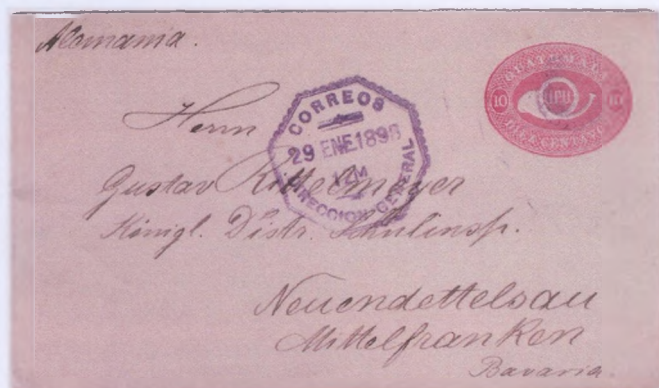 Alemania.
GUATEMALA
10 UPU 10
DIEZ CENTAVOS
CORREOS
29 ENE.1898
XZM
DIRECCION GENERAL
Herrn
Gustav Rittelmeyer
Königl. Distr. Schulinsp.
Neuendettelsau
Mittelfranken
Bavaria.